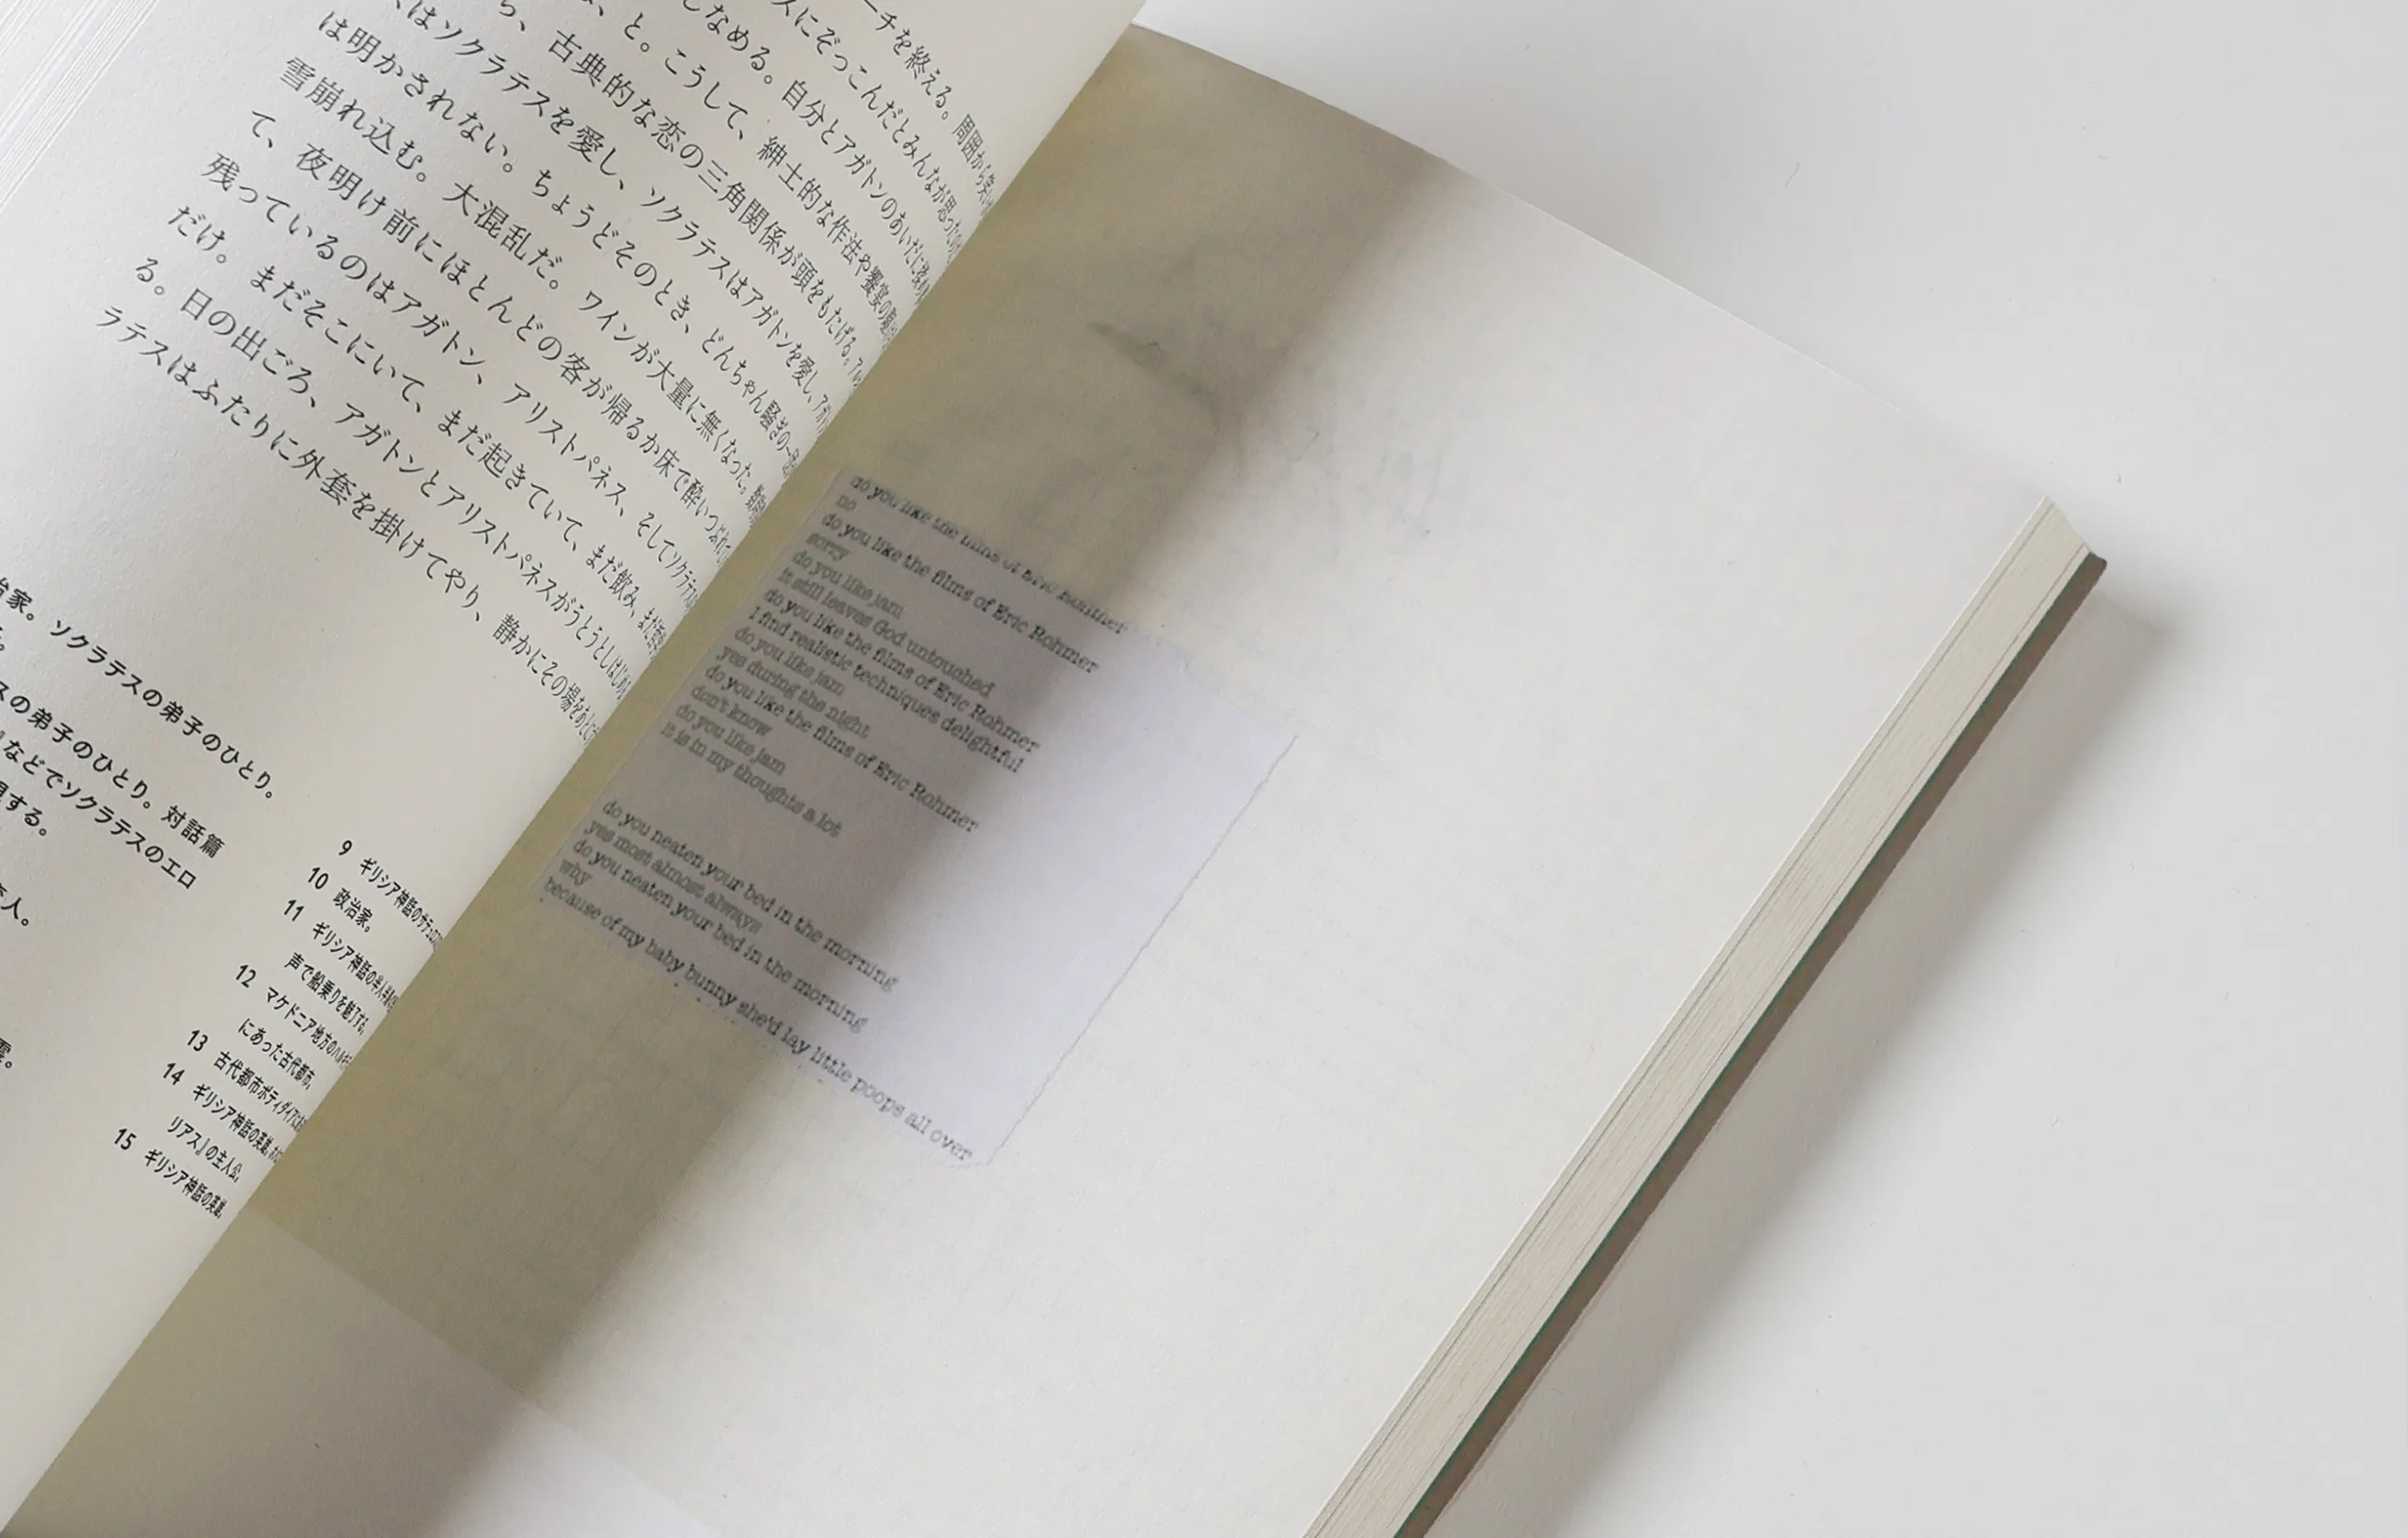 ーチを終える。周囲から笑い
スにぞっこんだとみんなが思ったの
しなめる。自分とアガトンのあいだに
、と。こうして、紳士的な作法や饗宴の
ら、古典的な恋の三角関係が頭をもたげる。
はソクラテスを愛し、ソクラテスはアガトンを愛し、
は明かされない。ちょうどそのとき、どんちゃん騒ぎの一
雪崩れ込む。大混乱だ。ワインが大量に無くなった。
て、夜明け前にほとんどの客が帰るか床で酔いつぶれて
残っているのはアガトン、アリストパネス、そしてソクラテス
だけ。まだそこにいて、まだ起きていて、まだ飲み、まだ
る。日の出ごろ、アガトンとアリストパネスがうとうとしはじめ
ラテスはふたりに外套を掛けてやり、静かにその場をあとに
治家。ソクラテスの弟子のひとり。
スの弟子のひとり。対話篇
などでソクラテスのエロ
する。
人。
9 ギリシア神話のサテュロス
10 政治家。
11 ギリシア神話の半人半
声で船乗りを魅了する。
12 マケドニア地方の
にあった古代都市。
13 古代都市ポティダイア
14 ギリシア神話の英雄。
リアス』の主人公。
15 ギリシア神話の英雄。
do you like the films of Eric Rohmer
no
do you like the films of Eric Rohmer
sorry
do you like jam
it still leaves God untouched
do you like the films of Eric Rohmer
I find realistic techniques delightful
do you like jam
yes during the night
do you like the films of Eric Rohmer
don't know
do you like jam
it is in my thoughts a lot
do you neaten your bed in the morning
yes most almost always
do you neaten your bed in the morning
why
because of my baby bunny she'd lay little poops all over